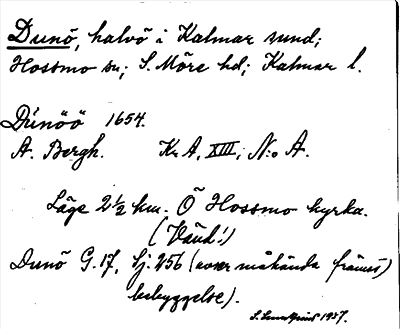 Dunö, halvö i Kalmar sund;
Hossmo sn; S. Möre hd; Kalmar l.
Dŭnöö 1654.
A. Bergh. Kr A, XIII, N:o A.
Läge 2½ km. Ö Hossmo kyrka.
(Vänd!)
Dunö G. 17, Sj. 256 (avser måhända främst
bebyggelse).
1937.